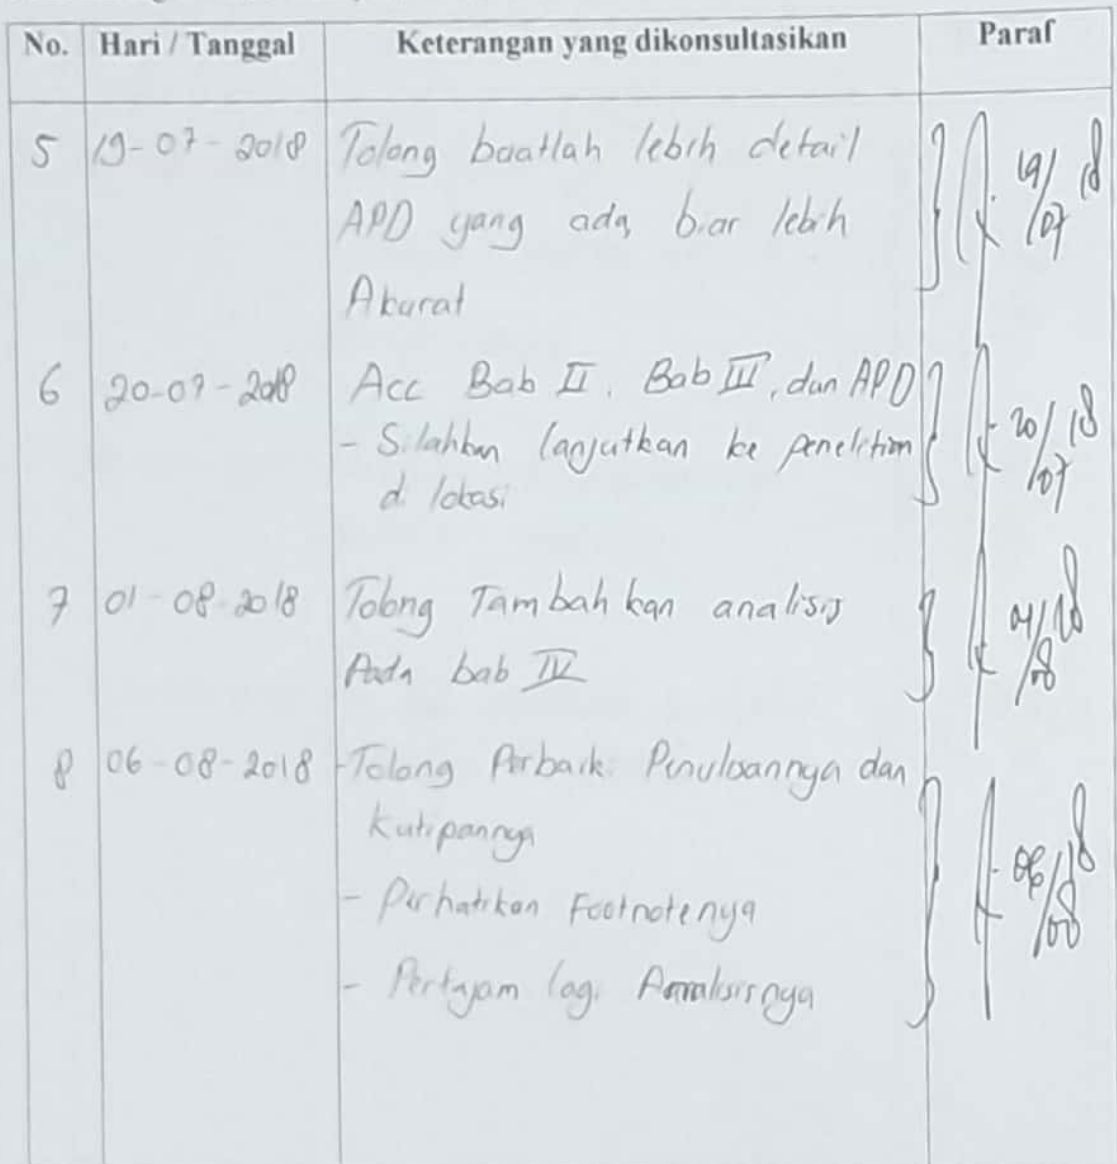 No. Hari / Tanggal Keterangan yang dikonsultasikan Paraf
5 19-07-2018 Tolong buatlah lebih detail 19/07 18
APD yang ada, biar lebih
Akurat
6 20-07-2018 Acc Bab II, Bab III, dan APD 20/07 18
- Silahkan lanjutkan ke penelitian
di lokasi
7 01-08-2018 Tolong Tambahkan analisis 01/08 18
Pada bab IV
8 06-08-2018 - Tolong Perbaiki Penulisannya dan
Kutipannya 06/08 18
- Perhatikan Footnotenya
- Pertajam lagi Analisisnya